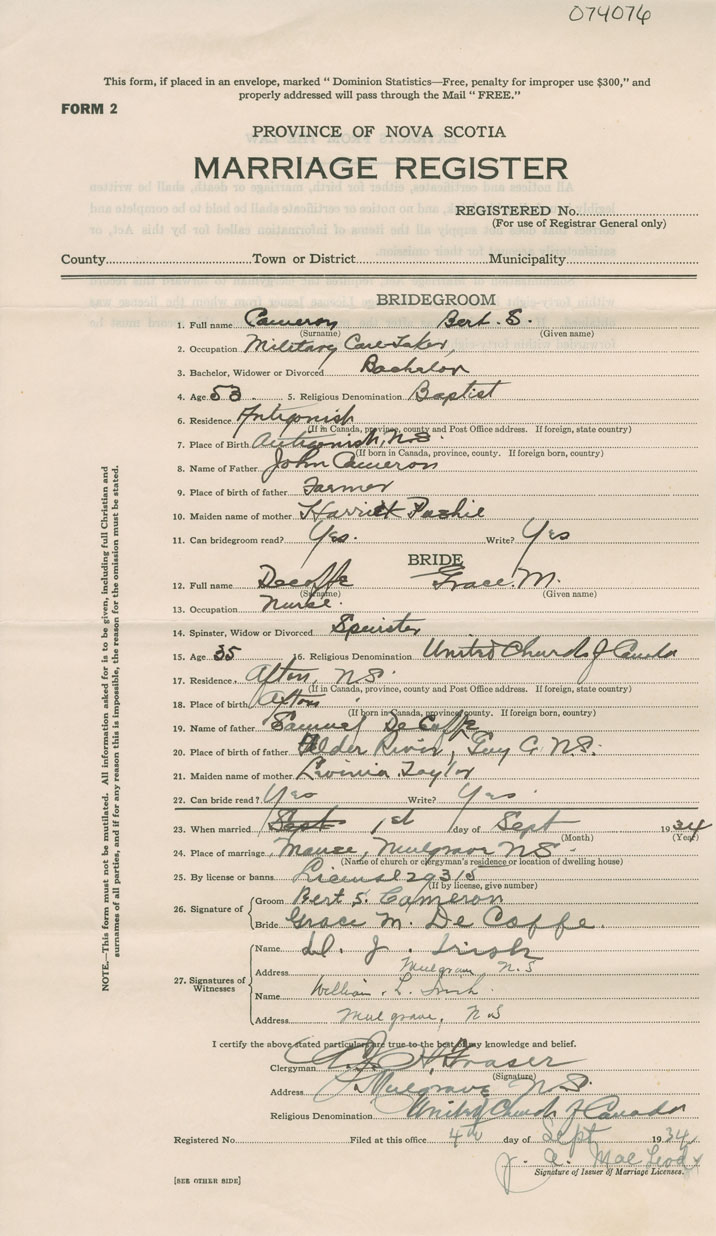 074076
This form, if placed in an envelope, marked “ Dominion Statistics—Free, penalty for improper use $300,” and
properly addressed will pass through the Mail “ FREE.”
FORM 2
PROVINCE OF NOVA SCOTIA
MARRIAGE REGISTER
REGISTERED No.
(For use of Registrar General only)
County Town or District Municipality
BRIDEGROOM
1. Full name Cameron Bert. S.
(Surname) (Given name)
2. Occupation Military Care Taker,
3. Bachelor, Widower or Divorced Bachelor
4. Age 53 5. Religious Denomination Baptist
6. Residence Antigonish
(If in Canada, province, county and Post Office address. If foreign, state country)
7. Place of Birth Antigonish, N.S.
(If born in Canada, province, county. If foreign born, country)
8. Name of Father John Cameron
9. Place of birth of father Farmer
10. Maiden name of mother Harriet
11. Can bridegroom read? Yes. Write? Yes
BRIDE
12. Full name Decoffe Grace. M.
(Surname) (Given name)
13. Occupation Nurse.
14. Spinster, Widow or Divorced Spinster
15. Age 35 16. Religious Denomination United Church of Canada
17. Residence Afton, N.S.
(If in Canada, province, county and Post Office address. If foreign, state country)
18. Place of birth Afton
(If born in Canada, province, county. If foreign born, country)
19. Name of father Samuel De Coffe
20. Place of birth of father River, Guy Co. N.S.
21. Maiden name of mother Levinia Taylor
22. Can bride read? Yes Write? Yes
23. When married Sept 1st day of Sept 1934
(Month) (Year)
24. Place of marriage Manse, Mulgrave N.S.
(Name of church or clergyman's residence or location of dwelling house)
25. By license or banns License
(If by license, give number)
26. Signature of Groom Bert S. Cameron
Bride Grace M. De Coffe.
27. Signatures of Witnesses
Name J. Irish
Address Mulgrave N.S
Name William. L. Irish.
Address Mulgrave, N S
I certify the above stated particulars are true to the best of my knowledge and belief.
Clergyman Fraser
(Signature)
Address Mulgrave N.S.
Religious Denomination United Church of Canada
Registered No. Filed at this office 4th day of Sept 1934
J. A. MacLeod
Signature of Issuer of Marriage Licenses.
[SEE OTHER SIDE]
NOTE.—This form must not be mutilated. All information asked for is to be given, including full Christian and
surnames of all parties, and if for any reason this is impossible, the reason for the omission must be stated.